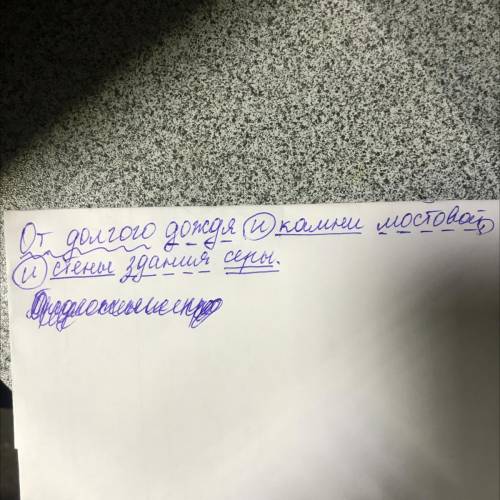 От долгого дождя и камни мостовой,
и стены здания серы.